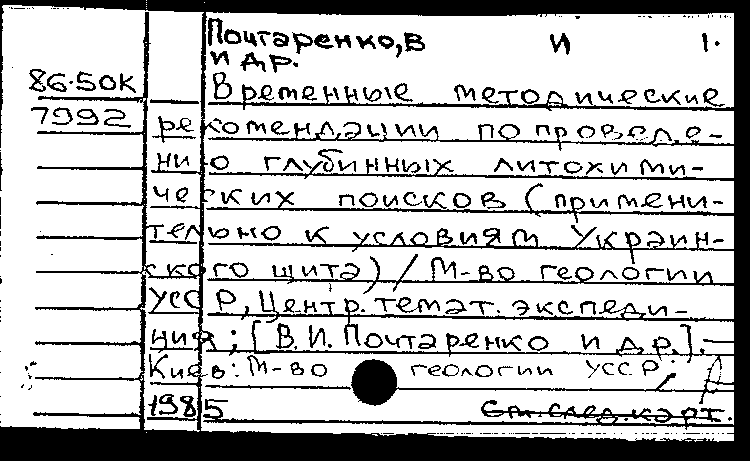 Почтаренко, В И 1.
и др.
86-50К Временные методические
7992 рекомендации по проведе-
нию глубинных литохими-
ческих поисков (примени-
тельно к условиям Украин-
ского щита) / М-во геологии
УССР, Центр. темат. экспеди-
ния; [В.И. Почтаренко и др.]. -
Киев: М-во геологии УССР,
1985 См. след. карт.